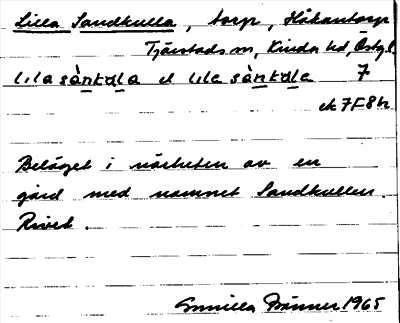 Lilla Sandkulla, torp, Håkantorp
Tjärstads sn, Kinda hd, Östg.
lila sàntkula el lila sàntkule 7
ek 7F8h
Beläget i närheten av en
gård med namnet Sandkullen.
Rivet.
Gunilla 1965